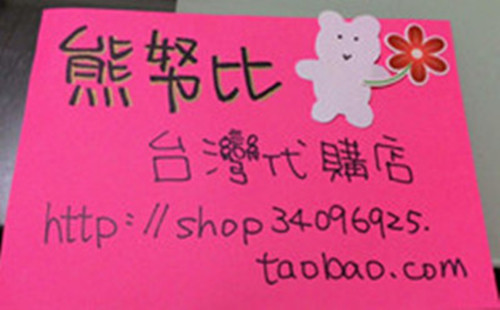 熊努比
台灣代購店
http://shop34096925.
taobao.com